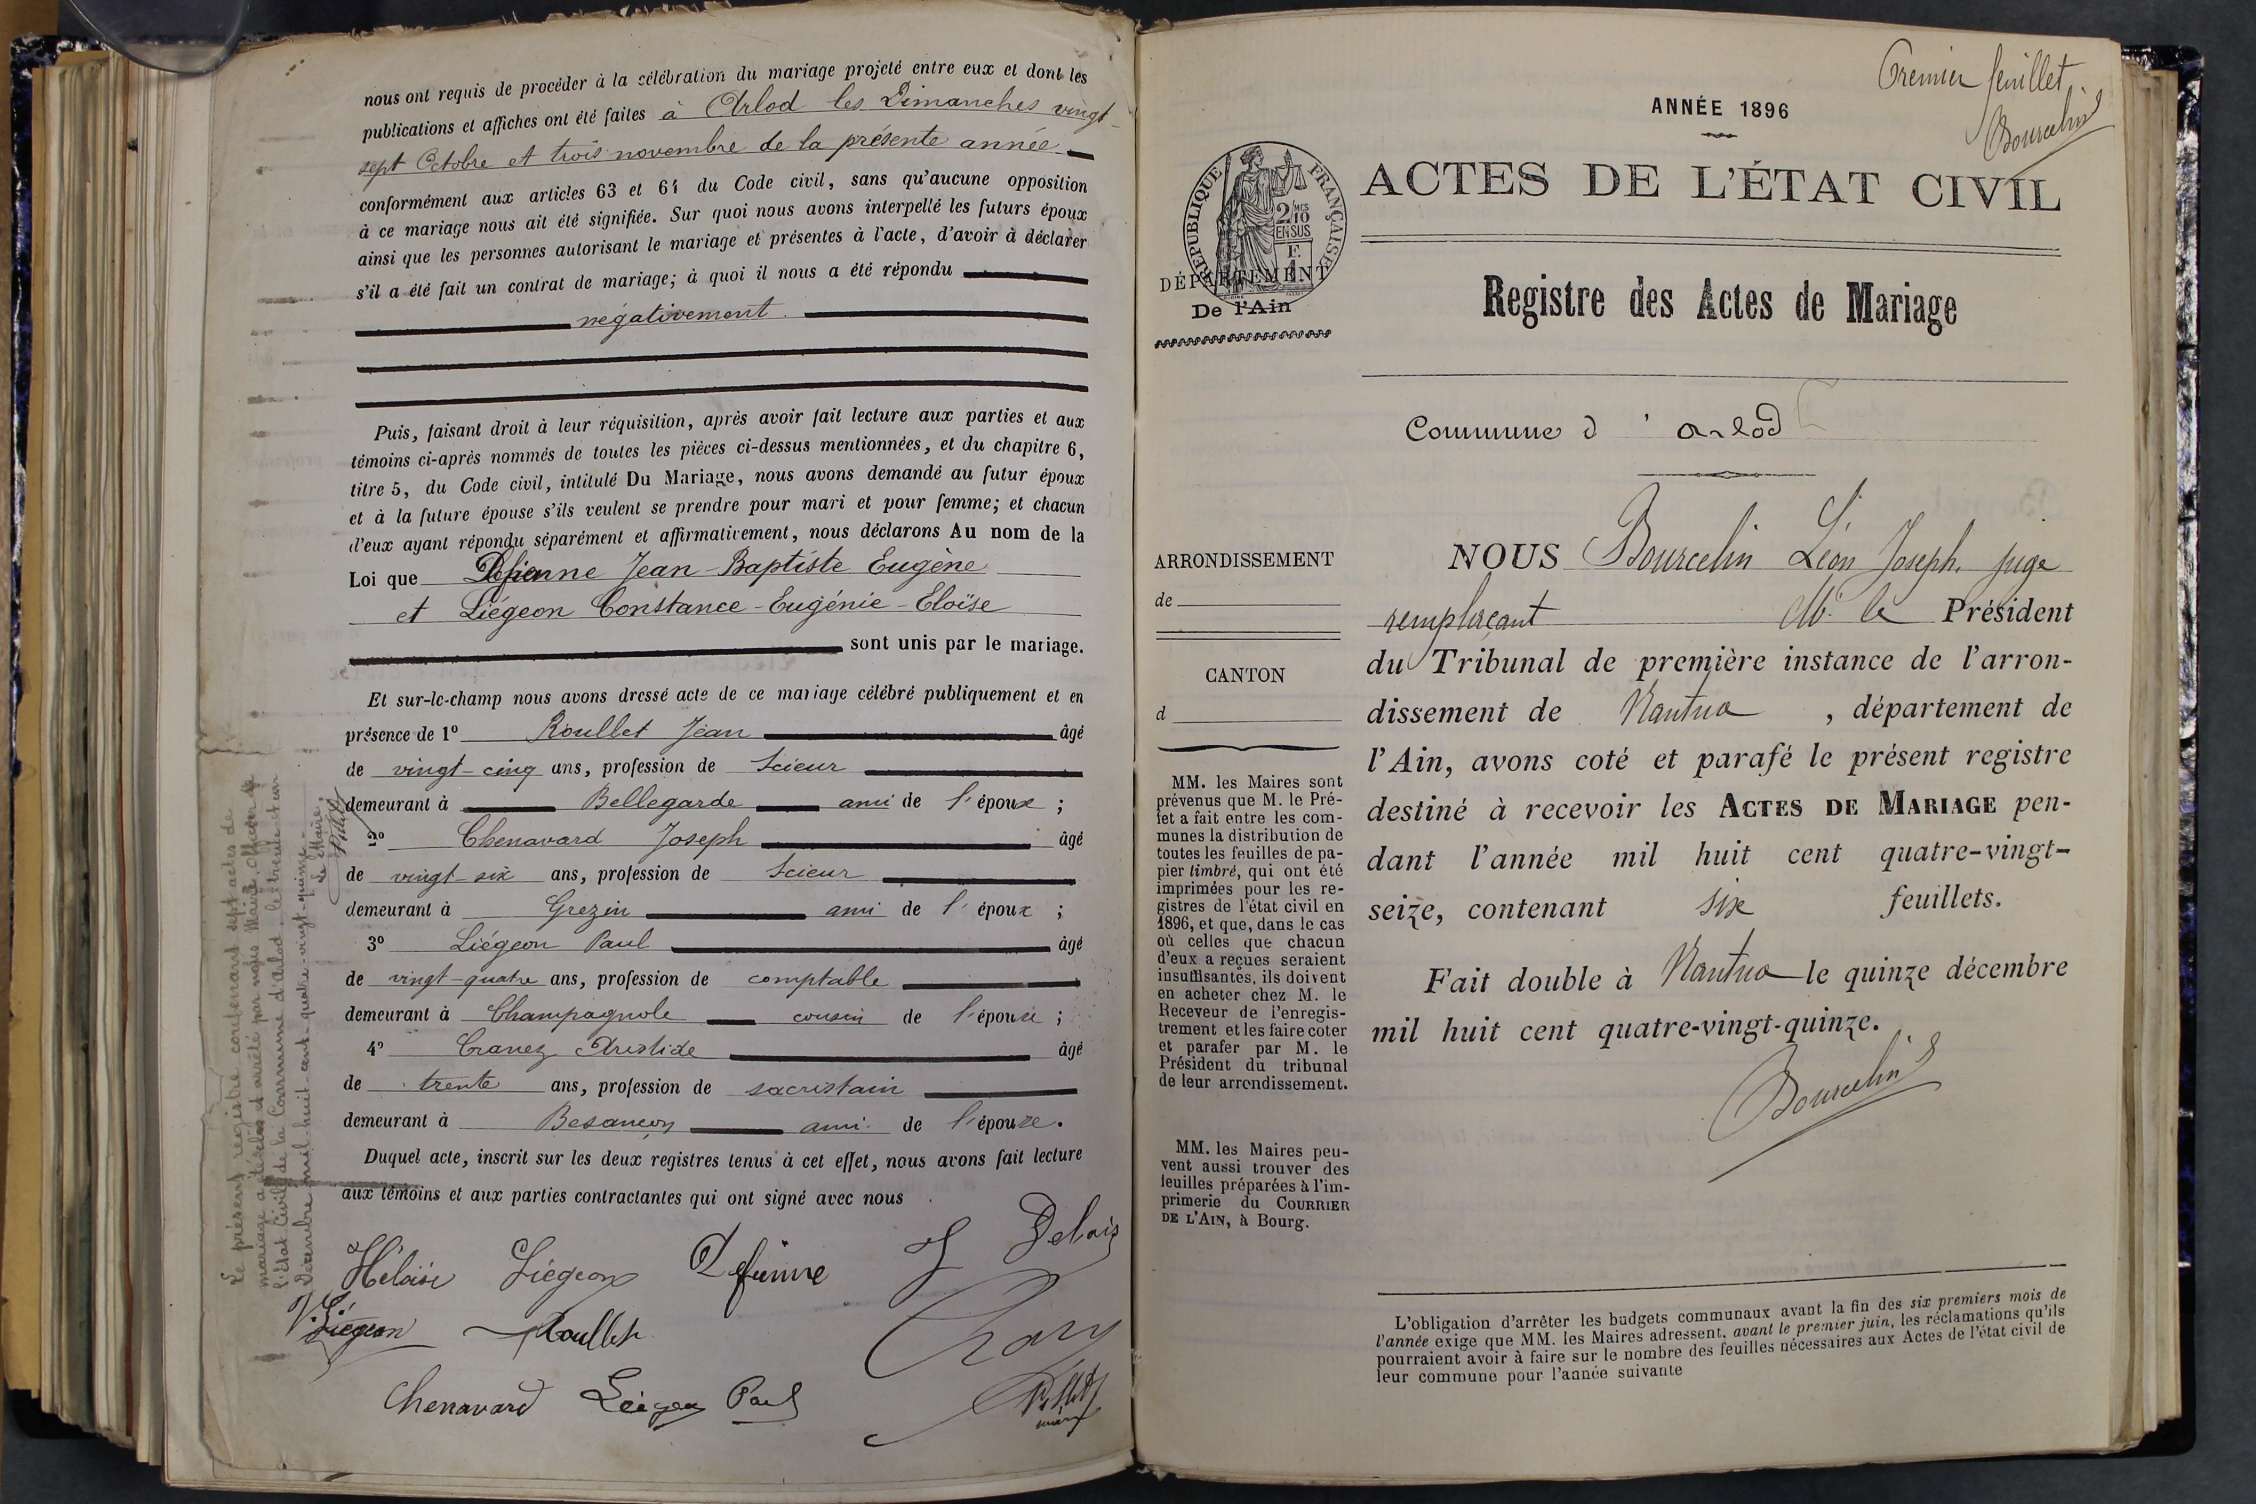 nous ont requis de procéder à la célébration du mariage projeté entre eux et dont les
publications et affiches ont été faites à Arlod les Dimanches vingt-
sept Octobre et trois novembre de la présente année
conformément aux articles 63 et 64 du Code civil, sans qu'aucune opposition
à ce mariage nous ait été signifiée. Sur quoi nous avons interpellé les futurs époux
ainsi que les personnes autorisant le mariage et présentes à l'acte, d'avoir à déclarer
s'il a été fait un contrat de mariage; à quoi il nous a été répondu
négativement
Puis, faisant droit à leur réquisition, après avoir fait lecture aux parties et aux
témoins ci-après nommés de toutes les pièces ci-dessus mentionnées, et du chapitre 6,
titre 5, du Code civil, intitulé Du Mariage, nous avons demandé au futur époux
et à la future épouse s'ils veulent se prendre pour mari et pour femme; et chacun
d'eux ayant répondu séparément et affirmativement, nous déclarons Au nom de la
Loi que Defienne Jean-Baptiste Eugène
et Liégeon Constance-Eugénie-Eloïse
sont unis par le mariage.
Et sur-le-champ nous avons dressé acte de ce mariage célébré publiquement et en
présence de 1º Roullet Jean âgé
de vingt-cinq ans, profession de Scieur
demeurant à Bellegarde ami de l'époux ;
2º Chenavard Joseph âgé
de vingt-six ans, profession de Scieur
demeurant à Grezin ami de l'époux ;
3º Liégeon Paul âgé
de vingt-quatre ans, profession de comptable
demeurant à Champagnole cousin de l'épouse ;
4º Aristide âgé
de trente ans, profession de sacristain
demeurant à Besançon ami de l'épouse.
Duquel acte, inscrit sur les deux registres tenus à cet effet, nous avons fait lecture
aux témoins et aux parties contractantes qui ont signé avec nous
Héloïse Liégeon Defienne J Delais
V. Liégeon Roullet
Chenavard Liégeon Paul
Le présent registre contenant sept actes de
mariage a été clos et arrêté par nous Maire, officier de
l'État Civil de la Commune d'Arlod, le trente et un
Décembre mil huit cent quatre-vingt-quinze.
Le Maire,
Premier feuillet
Bourcelin
ANNÉE 1896
ACTES DE L'ÉTAT CIVIL
RÉPUBLIQUE FRANÇAISE
2 10 MES
EN SUS
DÉPARTEMENT
De l'Ain
Registre des Actes de Mariage
Commune d'Arlod
ARRONDISSEMENT
de
CANTON
d
MM. les Maires sont
prévenus que M. le Pré-
fet a fait entre les com-
munes la distribution de
toutes les feuilles de pa-
pier timbré, qui ont été
imprimées pour les re-
gistres de l'état civil en
1896, et que, dans le cas
où celles que chacun
d'eux a reçues seraient
insuffisantes, ils doivent
en acheter chez M. le
Receveur de l'enregis-
trement et les faire coter
et parafer par M. le
Président du tribunal
de leur arrondissement.
MM. les Maires peu-
vent aussi trouver des
feuilles préparées à l'im-
primerie du COURRIER
DE L'AIN, à Bourg.
NOUS Bourcelin Léon Joseph, juge
remplaçant M. le Président
du Tribunal de première instance de l'arron-
dissement de Nantua, département de
l'Ain, avons coté et parafé le présent registre
destiné à recevoir les ACTES DE MARIAGE pen-
dant l'année mil huit cent quatre-vingt-
seize, contenant six feuillets.
Fait double à Nantua le quinze décembre
mil huit cent quatre-vingt-quinze.
Bourcelin
L'obligation d'arrêter les budgets communaux avant la fin des six premiers mois de
l'année exige que MM. les Maires adressent, avant le premier juin, les réclamations qu'ils
pourraient avoir à faire sur le nombre des feuilles nécessaires aux Actes de l'état civil de
leur commune pour l'année suivante